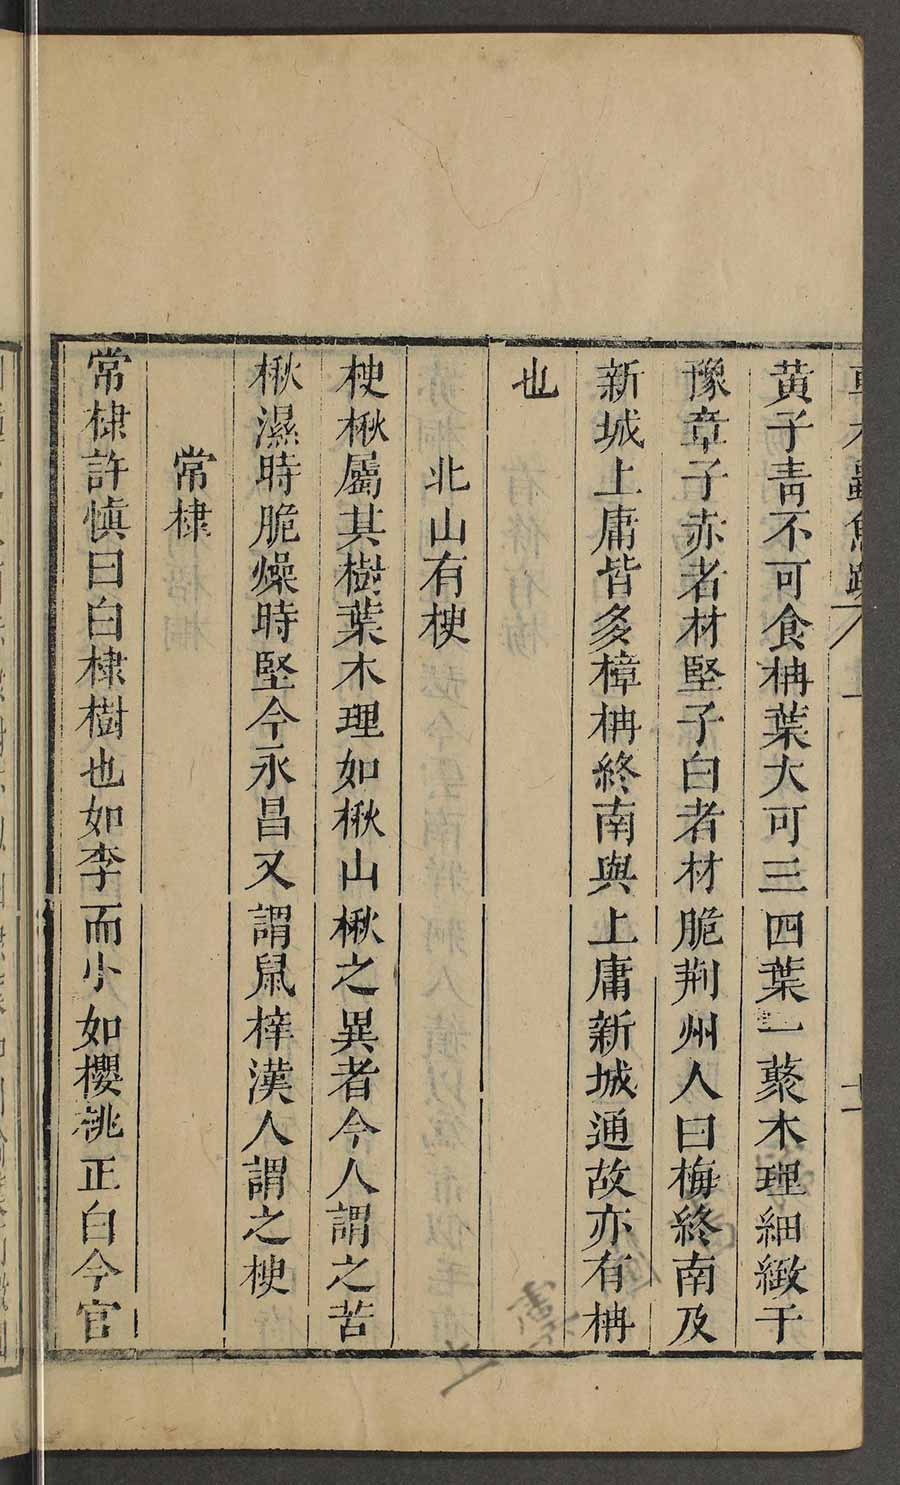 黃子青不可食柟葉大可三四葉一藂木理細緻于
豫章子赤者材堅子白者材脆荆州人曰梅終南及
新城上庸皆多樟柟終南與上庸新城通故亦有柟
也
北山有楰
楰楸屬其樹葉木理如楸山楸之異者今人謂之苦
楸濕時脆燥時堅今永昌又謂鼠梓漢人謂之楰
常棣
常棣許慎曰白棣樹也如李而小如櫻桃正白今官